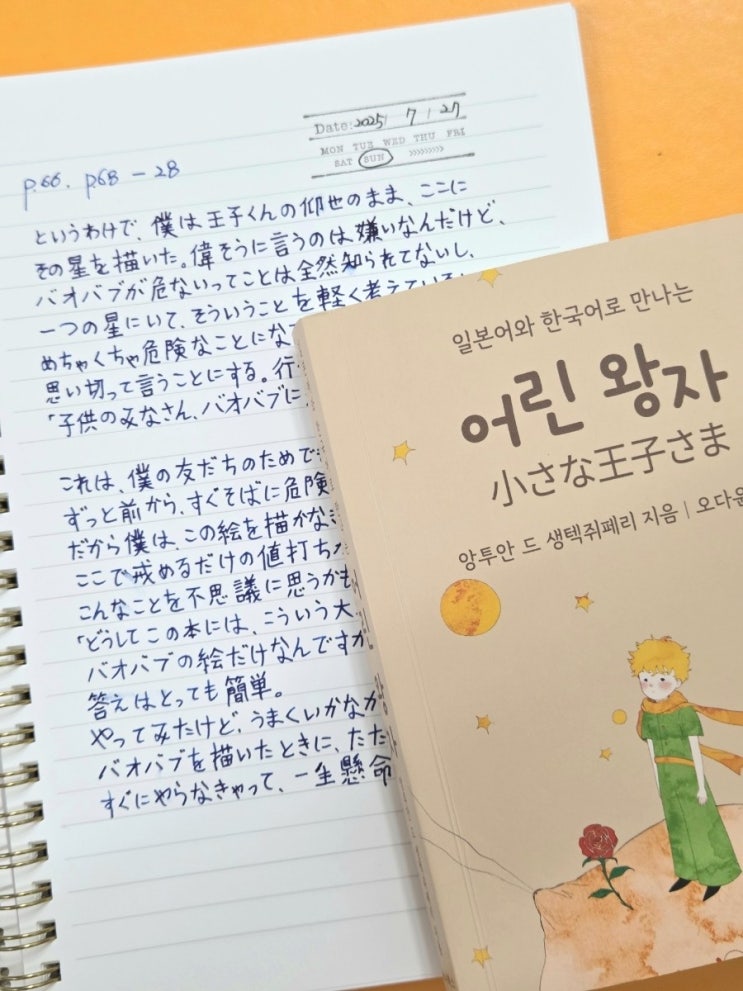 Date: 2025 / 7 / 27
MON TUE WED THU FRI
SAT SUN >>>>>>>>>
p.66. p68 - 28
というわけで、僕は王子くんの仰せのまま、ここに
その星を描いた。偉そうに言うのは嫌いなんだけど、
バオバブが危ないってことは全然知られてないし、
一つの星にいて、そういうことを軽く考えている
めちゃくちゃ危険なことにな
思い切って言うことにする。行
「子供のみなさん、バオバブに
これは、僕の友だちのためで
ずっと前から、すぐそばに危険
だから僕は、この絵を描かな
ここで戒めるだけの値打ち
こんなことを不思議に思うか
「どうしてこの本には、こういう大
バオバブの絵だけなんですか
答えはとっても簡単。
やってみたけど、うまくいかなか
バオバブを描いたときに、ただ
すぐにやらなきゃって、一生懸命
일본어와 한국어로 만나는
어린 왕자
小さな王子さま
앙투안 드 생텍쥐페리 지음 | 오다운